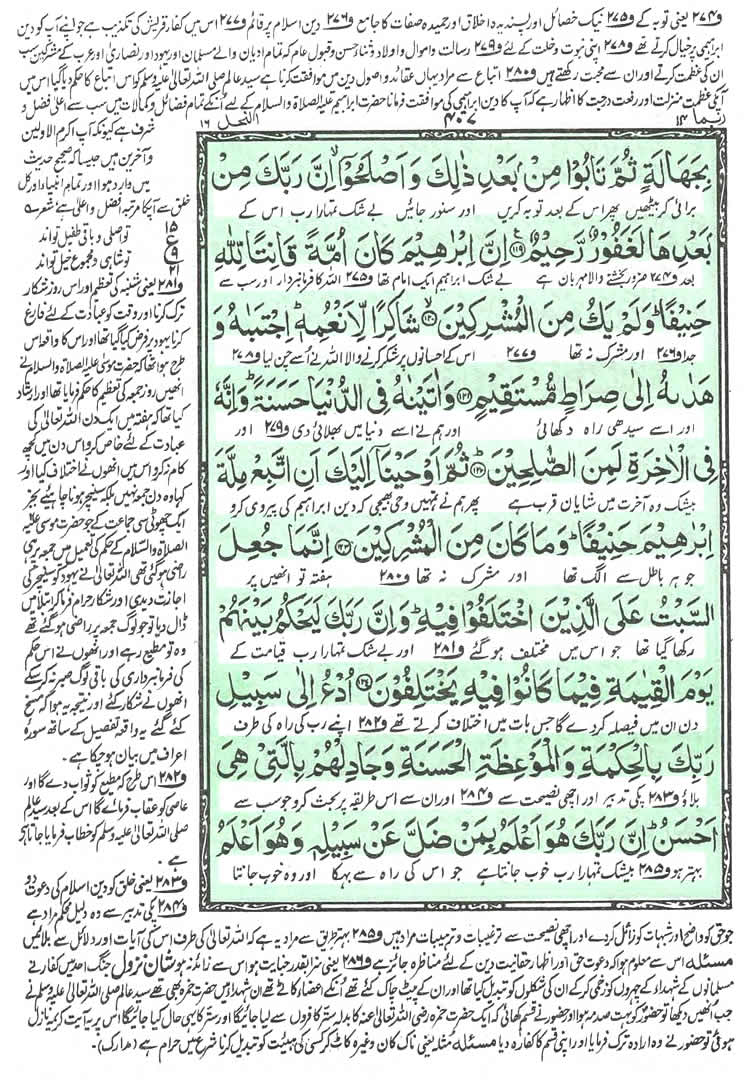 و۲۷۴ یعنی توبہ کے و۲۷۵ نیک خصائل اور پسندیدہ اخلاق اور حمیدہ صفات کا جامع و۲۷۶ دین اسلام پر قائم و۲۷۷ اس میں کفار قریش کی تکذیب ہے جو اپنے آپ کو دین
ابراہیمی پر خیال کرتے تھے و۲۷۸ اپنی نبوت و خلت کے لئے و۲۷۹ رسالت و اموال و اولاد و ثناء حسن و قبول عام کہ تمام ادیان والے مسلمان اور یہود اور نصاریٰ اور عرب کے مشرکین سب
ان کی عظمت کرتے اور ان سے محبت رکھتے ہیں و۲۸۰ اتباع سے مراد یہاں عقائد و اصول دین میں موافقت کرنا ہے سید عالم صلی اللہ تعالیٰ علیہ وسلم کو اس اتباع کا حکم دیا گیا اس میں
آپکی عظمت منزلت اور رفعت درجت کا اظہار ہے کہ آپ کا دین ابراہیمی کی موافقت فرمانا حضرت ابراہیم علیہ الصلاۃ والسلام کے لیے انکے تمام فضائل و کمالات میں سب سے اعلیٰ فضل و
ربما ۱۴
۴۰۷
النحل ۱۶
بِجَهَالَةٍ ثُمَّ تَابُوْا مِنْۢ بَعْدِ ذٰلِكَ وَ اَصْلَحُوْۤا اِنَّ رَبَّكَ مِنْۢ
برائی کر بیٹھیں پھر اس کے بعد توبہ کریں اور سنور جائیں بے شک تمہارا رب اس کے
بَعْدِهَا لَغَفُوْرٌ رَّحِیْمٌ۠ ۝۱۱۹ اِنَّ اِبْرٰهِیْمَ كَانَ اُمَّةً قَانِتًا لِّلّٰهِ
بعد و۲۷۴ ضرور بخشنے والا مہربان ہے بے شک ابراہیم ایک امام تھا و۲۷۵ اللہ کا فرمانبردار اور سب سے
حَنِیْفًا ؕ وَ لَمْ یَكُ مِنَ الْمُشْرِكِیْنَۙ ۝۱۲۰ شَاكِرًا لِّاَنْعُمِهٖ ؕ اِجْتَبٰىهُ وَ
جدا و۲۷۶ اور مشرک نہ تھا و۲۷۷ اس کے احسانوں پر شکر کرنے والا اللہ نے اُسے چن لیا و۲۷۸
هَدٰىهُ اِلٰى صِرَاطٍ مُّسْتَقِیْمٍ ۝۱۲۱ وَ اٰتَیْنٰهُ فِی الدُّنْیَا حَسَنَةً ؕ وَ اِنَّهٗ
اور اسے سیدھی راہ دکھائی اور ہم نے اسے دنیا میں بھلائی دی و۲۷۹ اور
فِی الْاٰخِرَةِ لَمِنَ الصّٰلِحِیْنَؕ ۝۱۲۲ ثُمَّ اَوْحَیْنَاۤ اِلَیْكَ اَنِ اتَّبِعْ مِلَّةَ
بیشک وہ آخرت میں شایان قرب ہے پھر ہم نے تمہیں وحی بھیجی کہ دین ابراہیم کی پیروی کرو
اِبْرٰهِیْمَ حَنِیْفًا ؕ وَ مَا كَانَ مِنَ الْمُشْرِكِیْنَ ۝۱۲۳ اِنَّمَا جُعِلَ
جو ہر باطل سے الگ تھا اور مشرک نہ تھا و۲۸۰ ہفتہ تو انھیں پر
السَّبْتُ عَلَى الَّذِیْنَ اخْتَلَفُوْا فِیْهِ ؕ وَ اِنَّ رَبَّكَ لَیَحْكُمُ بَیْنَهُمْ
رکھا گیا تھا جو اس میں مختلف ہو گئے و۲۸۱ اور بے شک تمہارا رب قیامت کے
یَوْمَ الْقِیٰمَةِ فِیْمَا كَانُوْا فِیْهِ یَخْتَلِفُوْنَ ۝۱۲۴ اُدْعُ اِلٰى سَبِیْلِ
دن ان میں فیصلہ کردے گا جس بات میں اختلاف کرتے تھے و۲۸۲ اپنے رب کی راہ کی طرف
رَبِّكَ بِالْحِكْمَةِ وَ الْمَوْعِظَةِ الْحَسَنَةِ وَ جَادِلْهُمْ بِالَّتِیْ هِیَ
بلاؤ و۲۸۳ پکی تدبیر اور اچھی نصیحت سے و۲۸۴ اور ان سے اس طریقہ پر بحث کرو جو سب سے
اَحْسَنُ ؕ اِنَّ رَبَّكَ هُوَ اَعْلَمُ بِمَنْ ضَلَّ عَنْ سَبِیْلِهٖ وَ هُوَ اَعْلَمُ
بہتر ہو و۲۸۵ بیشک تمہارا رب خوب جانتا ہے جو اس کی راہ سے بہکا اور وہ خوب جانتا
شرف ہے کیونکہ آپ اکرم الاولین
و آخرین ہیں جیسا کہ صحیح حدیث
میں وارد ہوا اور تمام انبیاء اور کل
خلق سے آپکا مرتبہ افضل و اعلیٰ ہے شعر
تو اصلی و باقی طفیل تو اند
تو شاہی و مجموع خیل تو اند
۱۵
ع
۹
۲۱
و۲۸۱ یعنی شنبہ کی تعظیم اور اس روز شکار
ترک کرنا اور وقت کو عبادت کے لئے فارغ
کرنا یہود پر فرض کیا گیا تھا اور اس کا واقعہ اس
طرح ہوا تھا کہ حضرت موسیٰ علیہ الصلاۃ والسلام نے
انھیں روز جمعہ کی تعظیم کا حکم فرمایا تھا اور ارشاد
کیا تھا کہ ہفتہ میں ایک دن اللہ تعالیٰ کی
عبادت کے لئے خاص کرو اس دن میں کچھ
کام نہ کرو اس میں انھوں نے اختلاف کیا اور
کہا وہ دن جمعہ نہیں بلکہ سنیچر ہونا چاہیئے بجز
ایک چھوٹی سی جماعت کے جو حضرت موسیٰ علیہ
الصلاۃ والسلام کے حکم کی تعمیل میں جمعہ پر ہی
راضی ہوگئی تھی اللہ تعالیٰ نے یہود کو سنیچر کی
اجازت دیدی اور شکار حرام فرما کر ابتلا میں
ڈال دیا تو جو لوگ جمعہ پر راضی ہو گئے تھے
وہ تو مطیع رہے اور انھوں نے اس حکم
کی فرمانبرداری کی باقی لوگ صبر نہ کرسکے
انھوں نے شکار کئے اور نتیجہ یہ ہوا کہ مسخ
کئے گئے یہ واقعہ تفصیل کے ساتھ سورۂ
اعراف میں بیان ہوچکا ہے۔
و۲۸۲ اس طرح کہ مطیع کو ثواب دے گا اور
عاصی کو عقاب فرمائے گا اس کے بعد سید عالم
صلی اللہ تعالیٰ علیہ وسلم کو خطاب فرمایا جاتا
ہے۔
و۲۸۳ یعنی خلق کو دین اسلام کی دعوت دو
و۲۸۴ پکی تدبیر سے وہ دلیل محکم مراد ہے
جو حق کو واضح اور شبہات کو زائل کردے اور اچھی نصیحت سے ترغیبات و ترہیبات مراد ہیں و۲۸۵ بہتر طریق سے مراد یہ ہے کہ اللہ تعالیٰ کی طرف اس کی آیات اور دلائل سے بلائیں
مسئلہ اس سے معلوم ہوا کہ دعوت حق اور اظہار حقانیت دین کے لئے مناظرہ جائز ہے و۲۸۶ یعنی سزا بقدر جنایت ہو اس سے زائد نہ ہو شان نزول جنگ احد میں کفار نے
مسلمانوں کے شہداء کے چہروں کو زخمی کرکے ان کی شکلوں کو تبدیل کیا تھا اور ان کے پیٹ چاک کئے تھے انکے اعضا کاٹے تھے ان شہداء میں حضرت حمزہ بھی تھے سید عالم صلی اللہ تعالیٰ علیہ وسلم نے
جب انھیں دیکھا تو حضور کو بہت صدمہ ہوا اور حضور نے قسم کھائی کہ ایک حضرت حمزہ رضی اللہ تعالیٰ عنہ کا بدلہ ستر کافروں سے لیا جائیگا اور ستر کا یہی حال کیا جائیگا اس پر یہ آیت کریمہ نازل
ہوئی تو حضور نے وہ ارادہ ترک فرمایا اور اپنی قسم کا کفارہ دیا مسئلہ مثلہ یعنی ناک کان وغیرہ کاٹ کر کسی کی ہیئت کو تبدیل کرنا شرع میں حرام ہے (مدارک)۔